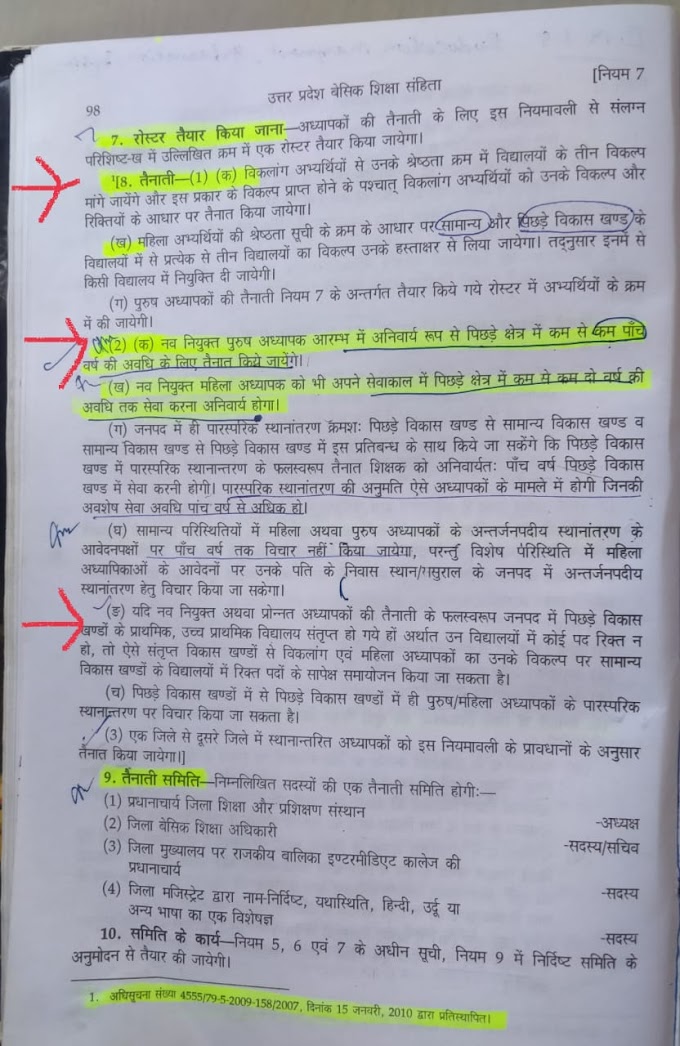 [नियम 7
98
उत्तर प्रदेश बेसिक शिक्षा संहिता
7. रोस्टर तैयार किया जाना—अध्यापकों की तैनाती के लिए इस नियमावली से संलग्न
परिशिष्ट-ख में उल्लिखित क्रम में एक रोस्टर तैयार किया जायेगा।
¹[8. तैनाती—(1) (क) विकलांग अभ्यर्थियों से उनके श्रेष्ठता क्रम में विद्यालयों के तीन विकल्प
मांगे जायेंगे और इस प्रकार के विकल्प प्राप्त होने के पश्चात् विकलांग अभ्यर्थियों को उनके विकल्प और
रिक्तियों के आधार पर तैनात किया जायेगा।
(ख) महिला अभ्यर्थियों की श्रेष्ठता सूची के क्रम के आधार पर सामान्य और पिछड़े विकास खण्ड के
विद्यालयों में से प्रत्येक से तीन विद्यालयों का विकल्प उनके हस्ताक्षर से लिया जायेगा। तद्नुसार इनमें से
किसी विद्यालय में नियुक्ति दी जायेगी।
(ग) पुरुष अध्यापकों की तैनाती नियम 7 के अन्तर्गत तैयार किये गये रोस्टर में अभ्यर्थियों के क्रम
में की जायेगी।
(2) (क) नव नियुक्त पुरुष अध्यापक आरम्भ में अनिवार्य रूप से पिछड़े क्षेत्र में कम से कम पाँच
वर्ष की अवधि के लिए तैनात किये जायेंगे।
(ख) नव नियुक्त महिला अध्यापक को भी अपने सेवाकाल में पिछड़े क्षेत्र में कम से कम दो वर्ष की
अवधि तक सेवा करना अनिवार्य होगा।
(ग) जनपद में ही पारस्परिक स्थानांतरण क्रमशः पिछड़े विकास खण्ड से सामान्य विकास खण्ड व
सामान्य विकास खण्ड से पिछड़े विकास खण्ड में इस प्रतिबन्ध के साथ किये जा सकेंगे कि पिछड़े विकास
खण्ड में पारस्परिक स्थानान्तरण के फलस्वरूप तैनात शिक्षक को अनिवार्यतः पाँच वर्ष पिछड़े विकास
खण्ड में सेवा करनी होगी। पारस्परिक स्थानांतरण की अनुमति ऐसे अध्यापकों के मामले में होगी जिनकी
अवशेष सेवा अवधि पांच वर्ष से अधिक हो।
(घ) सामान्य परिस्थितियों में महिला अथवा पुरुष अध्यापकों के अन्तर्जनपदीय स्थानांतरण के
आवेदनपक्षों पर पाँच वर्ष तक विचार नहीं किया जायेगा, परन्तु विशेष परिस्थिति में महिला
अध्यापिकाओं के आवेदनों पर उनके पति के निवास स्थान/ससुराल के जनपद में अन्तर्जनपदीय
स्थानांतरण हेतु विचार किया जा सकेगा।
(ङ) यदि नव नियुक्त अथवा प्रोन्नत अध्यापकों की तैनाती के फलस्वरूप जनपद में पिछड़े विकास
खण्डों के प्राथमिक, उच्च प्राथमिक विद्यालय संतृप्त हो गये हों अर्थात उन विद्यालयों में कोई पद रिक्त न
हो, तो ऐसे संतृप्त विकास खण्डों से विकलांग एवं महिला अध्यापकों का उनके विकल्प पर सामान्य
विकास खण्डों के विद्यालयों में रिक्त पदों के सापेक्ष समायोजन किया जा सकता है।
(च) पिछड़े विकास खण्डों में से पिछड़े विकास खण्डों में ही पुरुष/महिला अध्यापकों के पारस्परिक
स्थानान्तरण पर विचार किया जा सकता है।
(3) एक जिले से दूसरे जिले में स्थानान्तरित अध्यापकों को इस नियमावली के प्रावधानों के अनुसार
तैनात किया जायेगा।]
9. तैनाती समिति—निम्नलिखित सदस्यों की एक तैनाती समिति होगीः—
(1) प्रधानाचार्य जिला शिक्षा और प्रशिक्षण संस्थान
-अध्यक्ष
(2) जिला बेसिक शिक्षा अधिकारी
-सदस्य/सचिव
(3) जिला मुख्यालय पर राजकीय बालिका इण्टरमीडिएट कालेज की
प्रधानाचार्य
-सदस्य
(4) जिला मजिस्ट्रेट द्वारा नाम-निर्दिष्ट, यथास्थिति, हिन्दी, उर्दू या
अन्य भाषा का एक विशेषज्ञ
-सदस्य
10. समिति के कार्य—नियम 5, 6 एवं 7 के अधीन सूची, नियम 9 में निर्दिष्ट समिति के
अनुमोदन से तैयार की जायेगी।
1. अधिसूचना संख्या 4555/79-5-2009-158/2007, दिनांक 15 जनवरी, 2010 द्वारा प्रतिस्थापित।